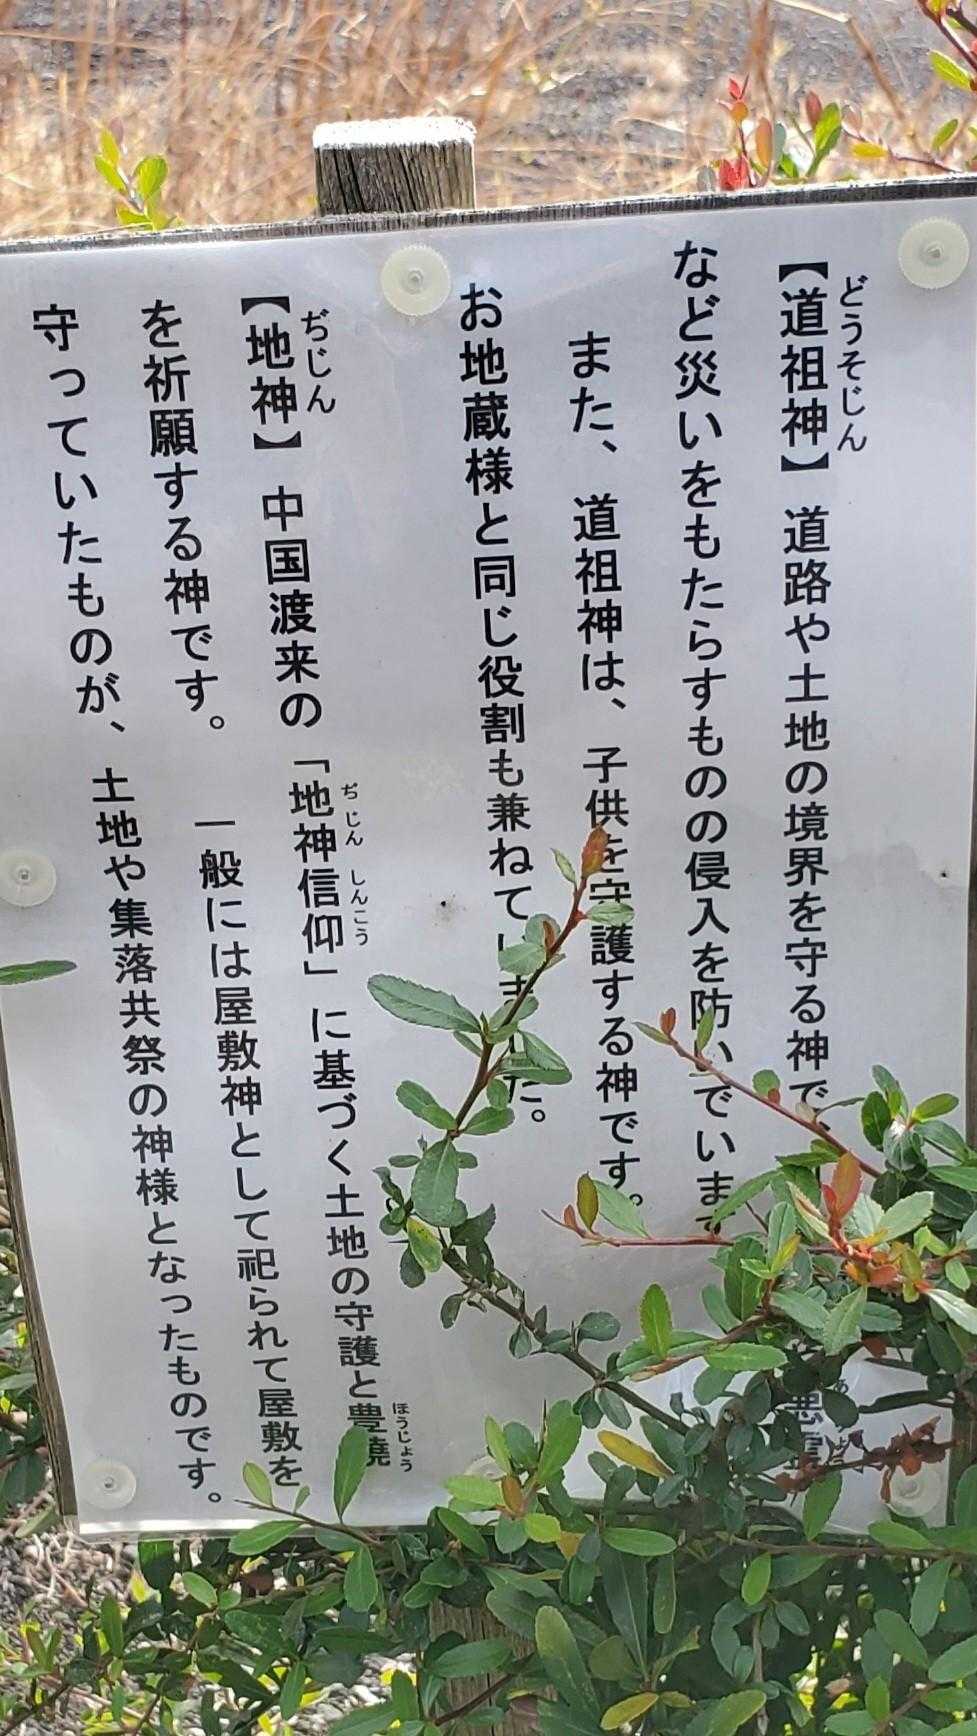 【道祖神】道路や土地の境界を守る神で
どうそじん
悪霊
など災いをもたらすものの侵入を防いでいます
また、道祖神は、子供を守護する神です。
お地蔵様と同じ役割も兼ねていました。
【地神】中国渡来の「地神信仰」に基づく土地の守護と豊饒
ぢじん
ぢじんしんこう
ほうじょう
を祈願する神です。一般には屋敷神として祀られて屋敷を
守っていたものが、土地や集落共祭の神様となったものです。